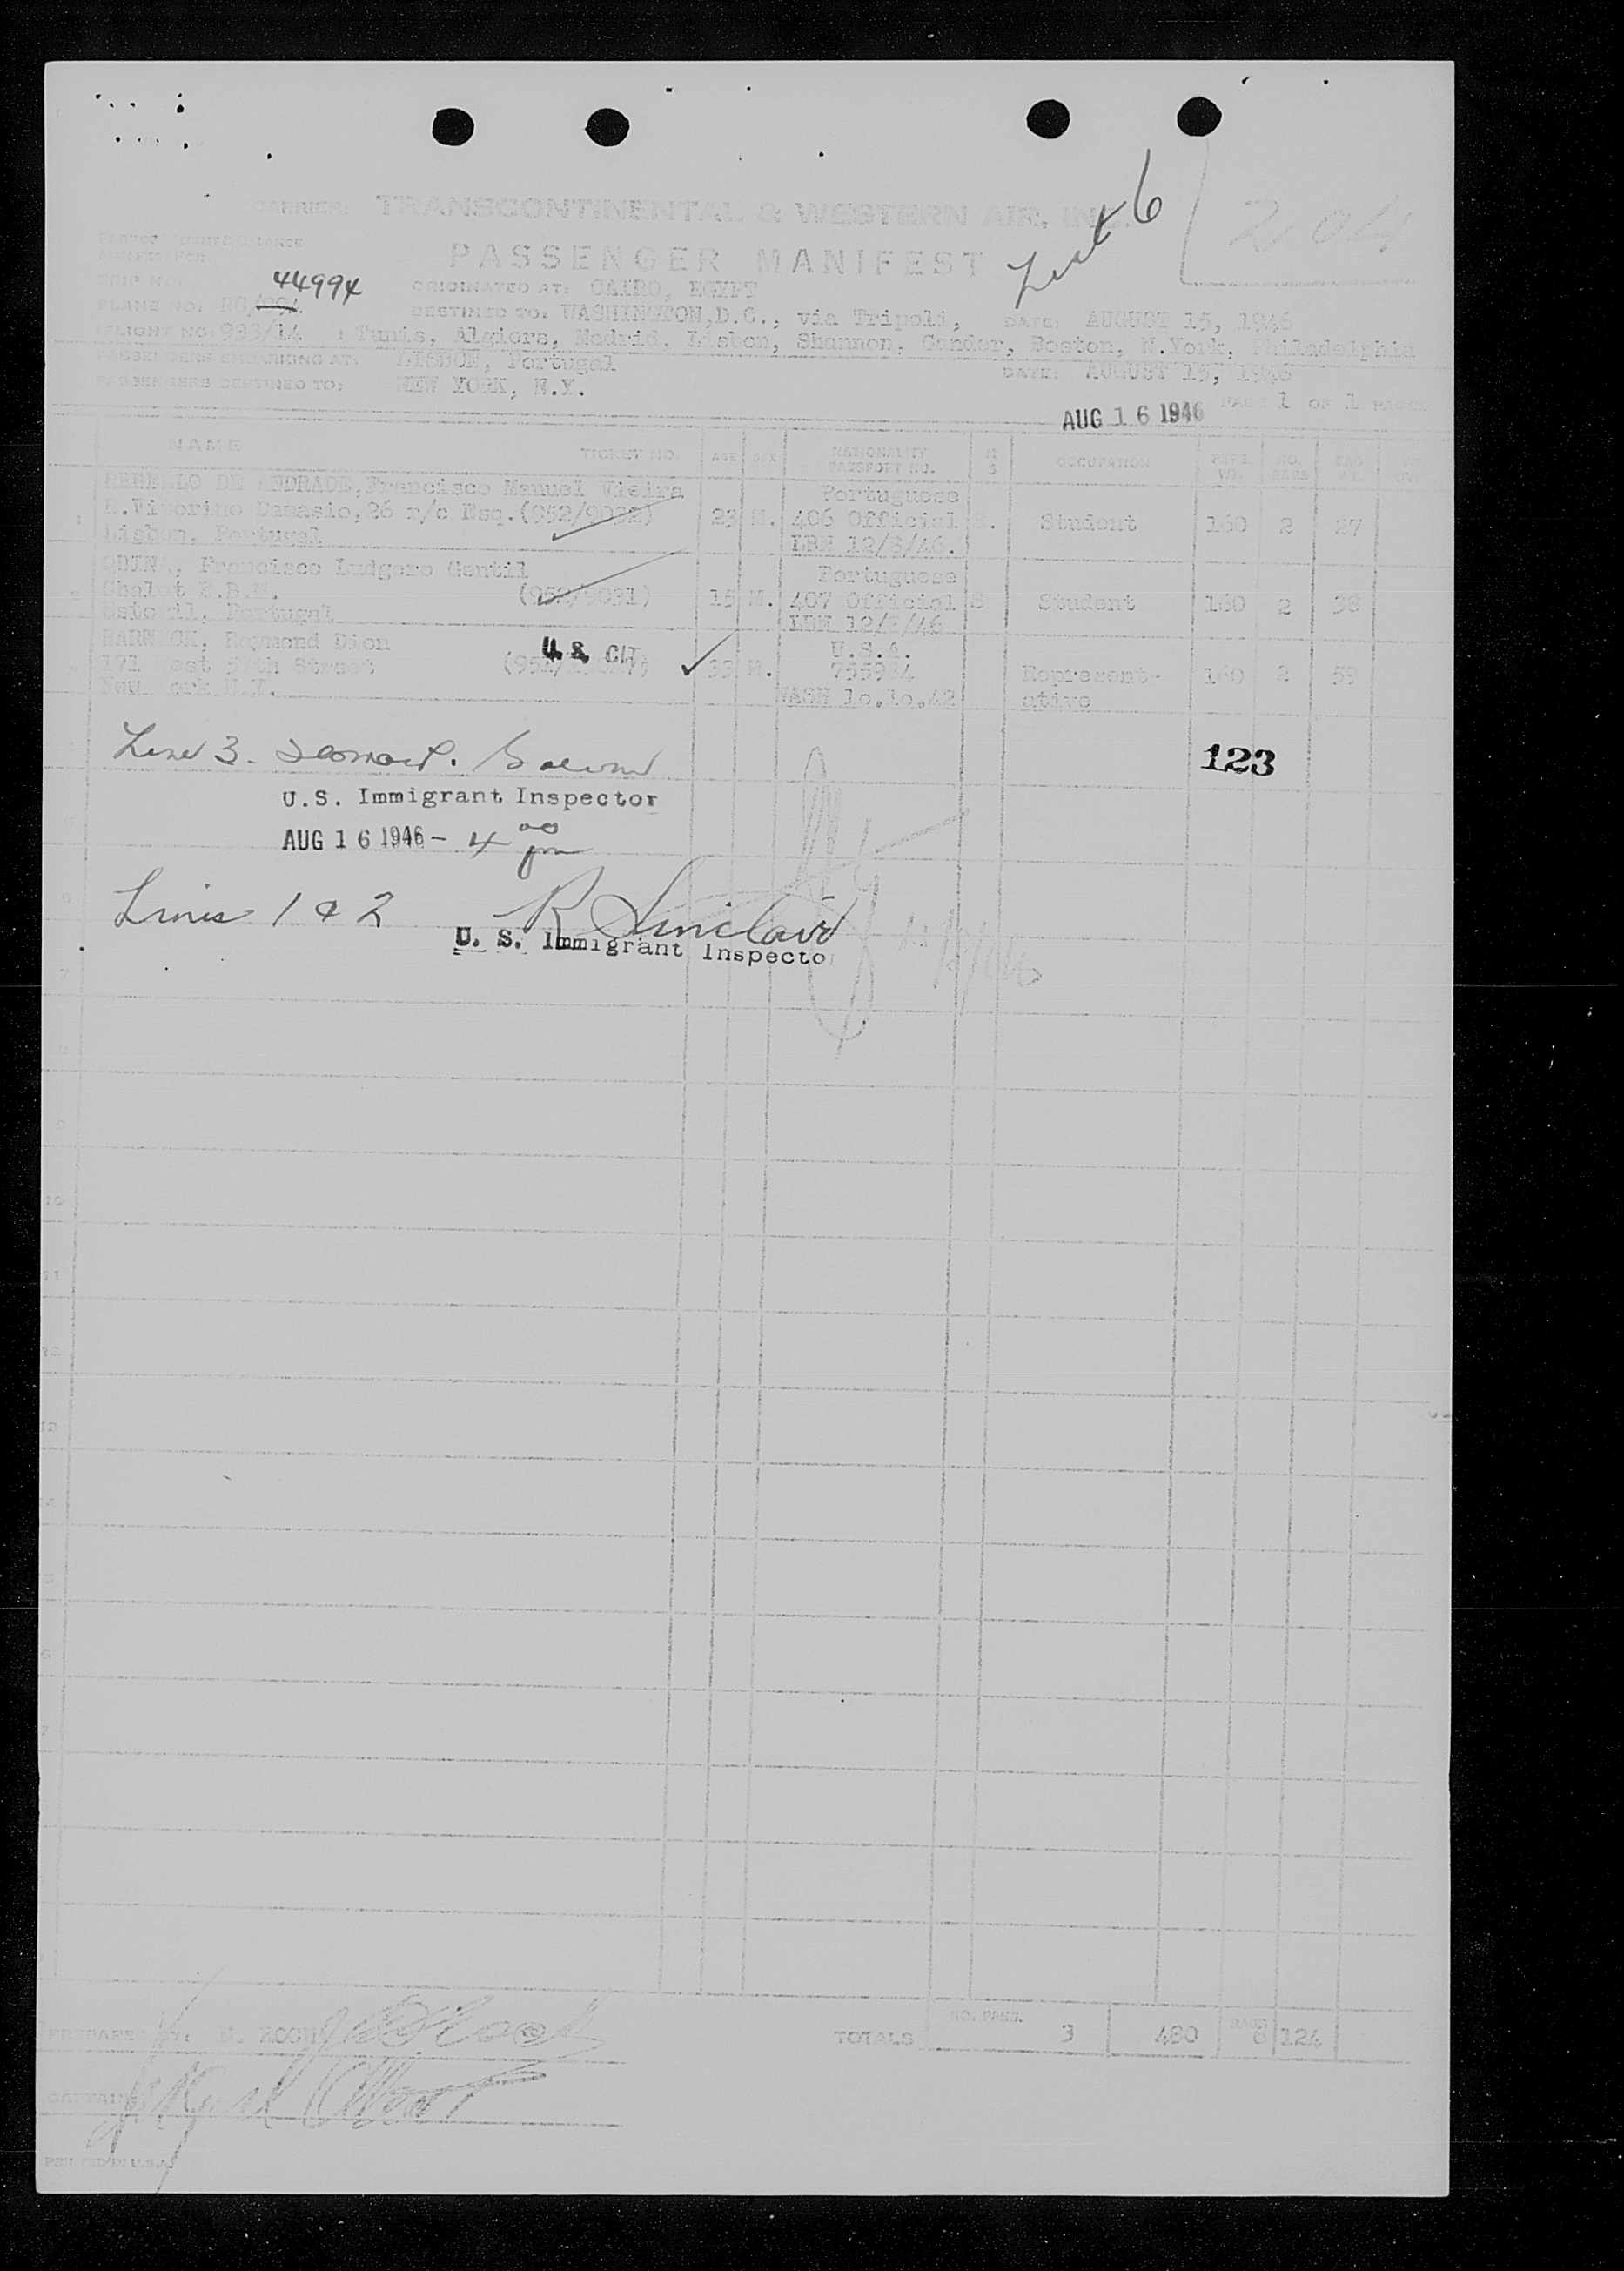 CARRIER: TRANSCONTINENTAL & WESTERN AIR, INC.
List 6
204
PASSENGER MANIFEST
TRIP NO.
44994
ORIGINATED AT: CAIRO, EGYPT
PLANE NO.
DESTINED TO: WASHINGTON, D.C., via Tripoli, DATE: AUGUST 15, 1946
FLIGHT NO: 933/14 : Tunis, Algiers, Madrid, Lisbon, Shannon, Gander, Boston, N.York, Philadelphia
PASSENGERS EMBARKING AT: LISBON, Portugal DATE: AUGUST 15, 1946
PASSENGERS DESTINED TO: NEW YORK, N.Y.
PAGE 1 OF 1 PAGES
AUG 16 1946
NAME TICKET NO. AGE SEX NATIONALITY PASSPORT NO. M S OCCUPATION PSGR. WT. NO. BAGS BAG WT.
1 REBELLO DE ANDRADE, Francisco Manuel Vieira Portuguese
R.Vitorino Damasio, 26 r/c Esq. (952/9032) 23 M. 406 Official S. Student 160 2 27
Lisbon, Portugal
2 Francisco Ludgero Gentil Portuguese
Chalet (952/9031) 15 M. 407 Official S Student 160 2 38
Estoril, Portugal
3 Raymond Dion U.S. CIT U.S.A.
171 West 57th Street 33 M. Represent- 160 2 59
New York N.Y. WASH 10.10.42 ative
Line 3.
123
U.S. Immigrant Inspector
AUG 16 1946 - 4 00 pm
Lines 1 & 2 R Sinclair
U. S. Immigrant Inspector
PREPARED BY:
TOTALS NO. PASS. 3 480 BAGS 6 124
CAPTAIN:
PRINTED IN U.S.A.